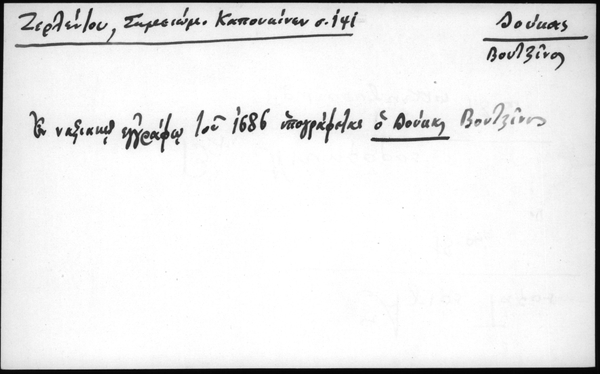 Ζερλέντου, Σημειώμ. Καπουκίνων σ. 141
Δούκας
Βουτζῖνος
Ἐν ναξιακῷ ἐγγράφῳ τοῦ 1686 ὑπογράφεται ὁ Δούκας Βουτζῖνος